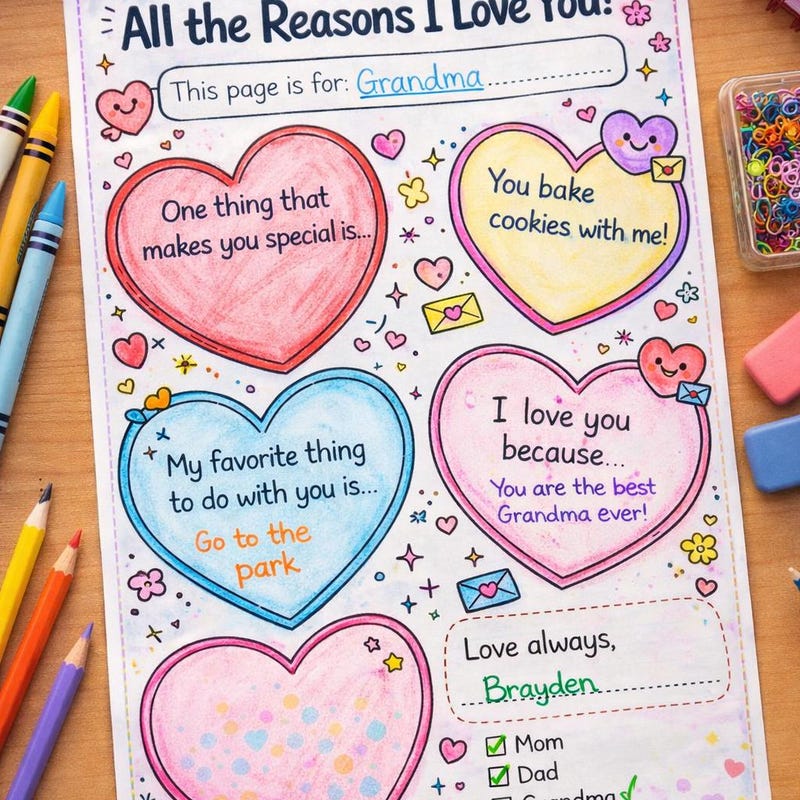 All the Reasons I Love You!
This page is for: Grandma
One thing that
makes you special is...
You bake
cookies with me!
My favorite thing
to do with you is...
Go to the
park
I love you
because...
You are the best
Grandma ever!
Love always,
Brayden
Mom
Dad
Grandma